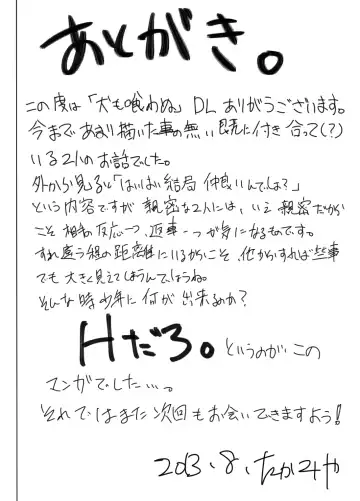 あとがき。
この度は「犬も喰わぬ」DLありがとうございます。
今まであまり描いた事の無い既に付き合って(?)
いる2人のお話でした。
外から見ると「はいはい結局仲良いんでしょ?」
という内容ですが親密な2人には、いえ親密だから
こそ相手の反応一つ、返事一つが気になるものです。
すれ違う程の距離にいるからこそ、他からすれば些事
でも大きく見えてしまうんでしょうね。
そんな時少年に何が出来るのか?
Hだろ。というのがこの
マンガでした…。
それではまた次回もお会いできますよう!
2013.8.たかみや